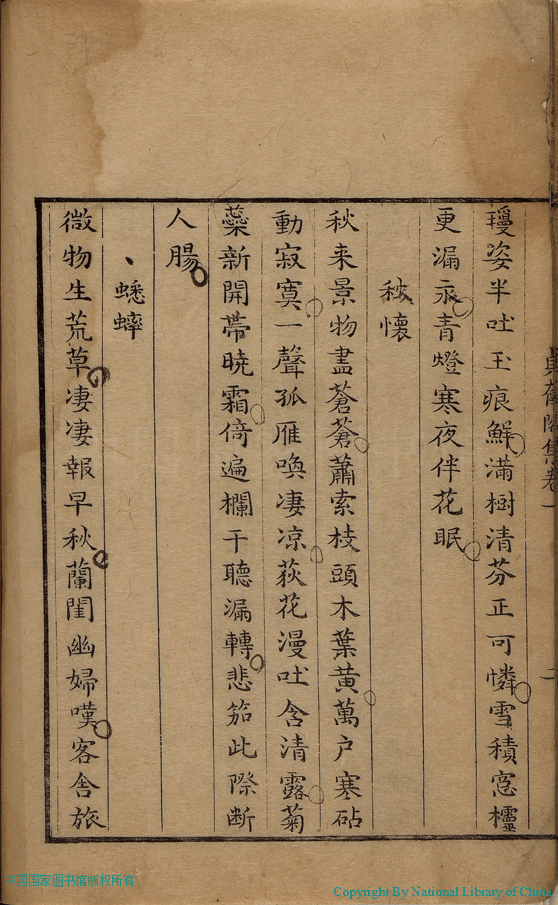 瓊姿半吐玉痕鮮滿樹清芬正可憐雪積窓櫺
更漏永青燈寒夜伴花眠
秋懷
秋来景物盡蒼蒼蕭索枝頭木葉黃萬户寒砧
動寂寞一聲孤雁喚凄凉荻花漫吐含清露菊
蘂新開帶曉霜倚遍欄干聽漏轉悲笳此際断
人腸
蟋蟀
微物生荒草凄凄報早秋蘭閨幽婦嘆客舍旅
閣集卷一
二
中国国家图书馆版权所有
Copyright By National Library of China